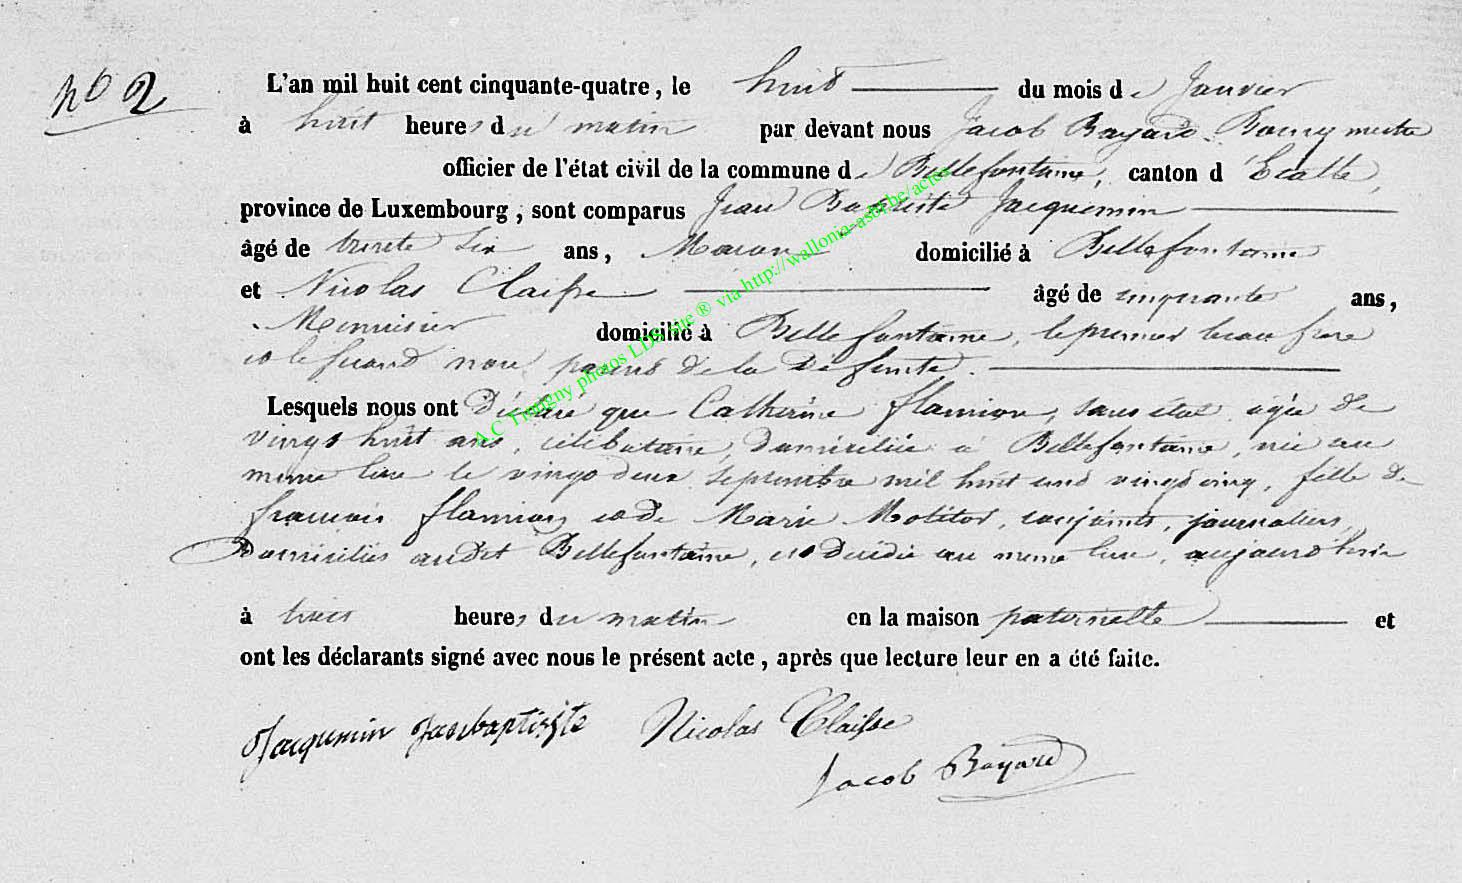 nº 2
L'an mil huit cent cinquante-quatre, le huit du mois de Janvier
à huit heures du matin par devant nous Jacob Bayard Bourgmestre
officier de l'état civil de la commune de Bellefontaine, canton d'Etalle,
province de Luxembourg, sont comparus Jean Baptiste Jacquemin
âgé de trente six ans, Maçon domicilié à Bellefontaine
et Nicolas Claisse âgé de cinquante ans,
Menuisier domicilié à Bellefontaine, le premier beau frere
et le second non parent de la défunte.
Lesquels nous ont déclaré que Catherine flamion, sans état, agée de
vingt huit ans, célibataire, domiciliée à Bellefontaine, née au
meme lieu le vingt deux septembre mil huit cent vingt cinq, fille de
francois flamion et de Marie Molitor, conjoints, journaliers,
Domiciliés audit Bellefontaine, est décédée au meme lieu, aujourd'hui
à heures du matin en la maison paternelle et
ont les déclarants signé avec nous le présent acte, après que lecture leur en a été faite.
Jacquemin Janbaptiste Nicolas Claisse
Jacob Bayard
A.C Tintigny photos LDS site ® via http://walloma-asbl.be/actes